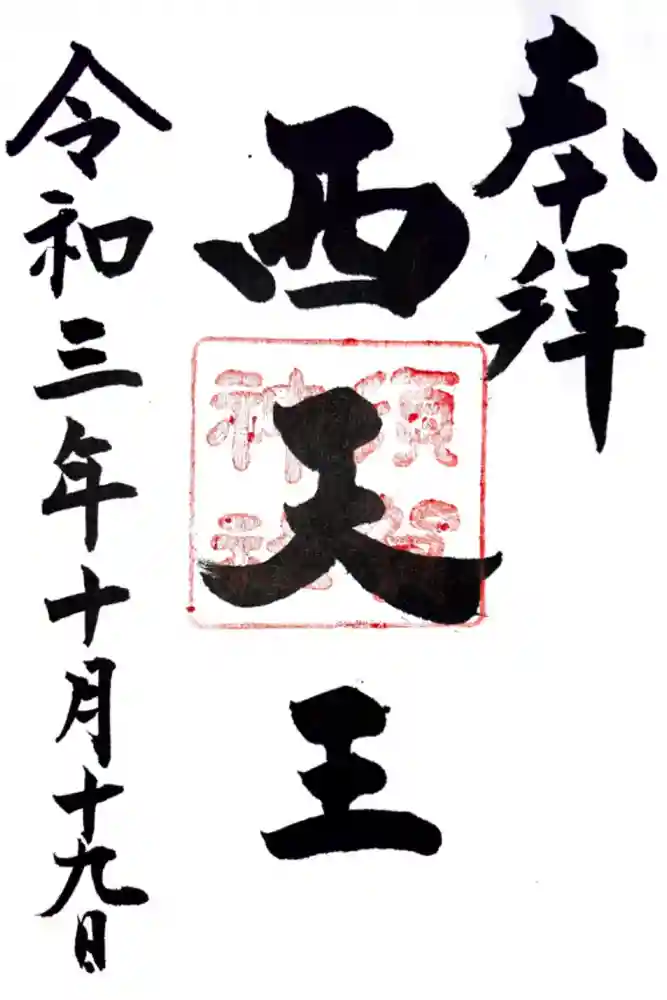 奉拜
西天王
令和三年十月十九日